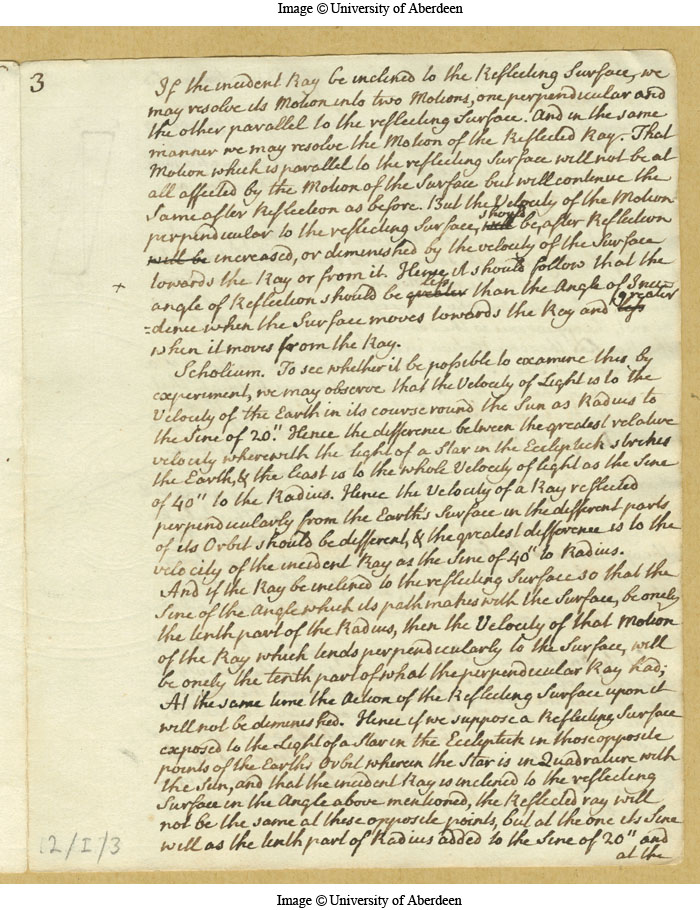 Image © University of Aberdeen
3
If the incident Ray be inclined to the Reflecting Surface, we
may resolve its Motion into two Motions, one perpendicular and
the other parallel to the reflecting Surface. And in the same
manner we may resolve the Motion of the Reflected Ray. That
Motion which is parallel to the reflecting Surface will not be at
all affected by the Motion of the Surface but will continue the
same after Reflection as before. But the Velocity of the Motion
should
perpendicular to the reflecting Surface, will be, after Reflection
will be increased, or diminished by the velocity of the Surface
towards the Ray or from it. Hence it should follow that the
less
angle of Reflection should be greater than the Angle of Inci
greater
=dence when the Surface moves towards the Ray and less
when it moves from the Ray.
Scholium. To see whether it be possible to examine this by
experiment, we may observe that the Velocity of Light is to the
Velocity of the Earth in its course round the Sun as Radius to
the Sine of 20". Hence the difference between the greatest relative
velocity wherewith the light of a Star in the Ecliptick strikes
the Earth, & the least is to the whole Velocity of light as the Sine
of 40" to the Radius. Hence the Velocity of a Ray reflected
perpendicularly from the Earth's Surface in the different parts
of its Orbit should be different, & the greatest difference is to the
velocity of the incident Ray as the Sine of 40" to Radius.
And if the Ray be inclined to the reflecting Surface so that the
Sine of the Angle which its path makes with the Surface, be onely
the tenth part of the Radius, then the Velocity of that Motion
of the Ray which tends perpendicularly to the Surface, will
be onely the tenth part of what the perpendicular Ray had;
At the same time the Action of the Reflecting Surface upon it
will not be diminished. Hence if we suppose a Reflecting Surface
exposed to the Light of a Star in the Ecliptick in those opposite
points of the Earths Orbit wherein the Star is in Quadrature with
the Sun, and that the incident Ray is inclined to the reflecting
Surface in the Angle above mentioned, the Reflected ray will
not be the same at these opposite points, but at the one its Sine
will as the tenth part of Radius added to the Sine of 20" and
at the
2/I/3
Image © University of Aberdeen